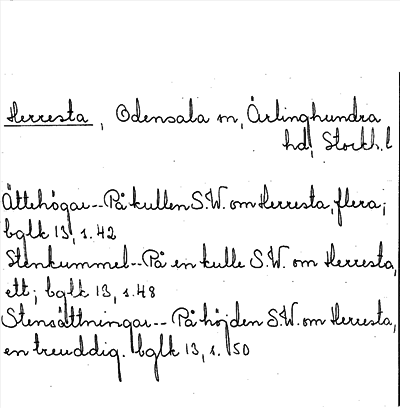 Herresta, Odensala sn, Ärlinghundra
hd, Stockh.l
Ättehögar--På kullen S.W. om Herresta, flera;
bglk 13, s.42
Stenkummel--På en kulle S.W. om Herresta,
ett; bglk 13, s.48
Stensättningar--På höjden S.W. om Herresta,
en treuddig. bglk 13, s. 50